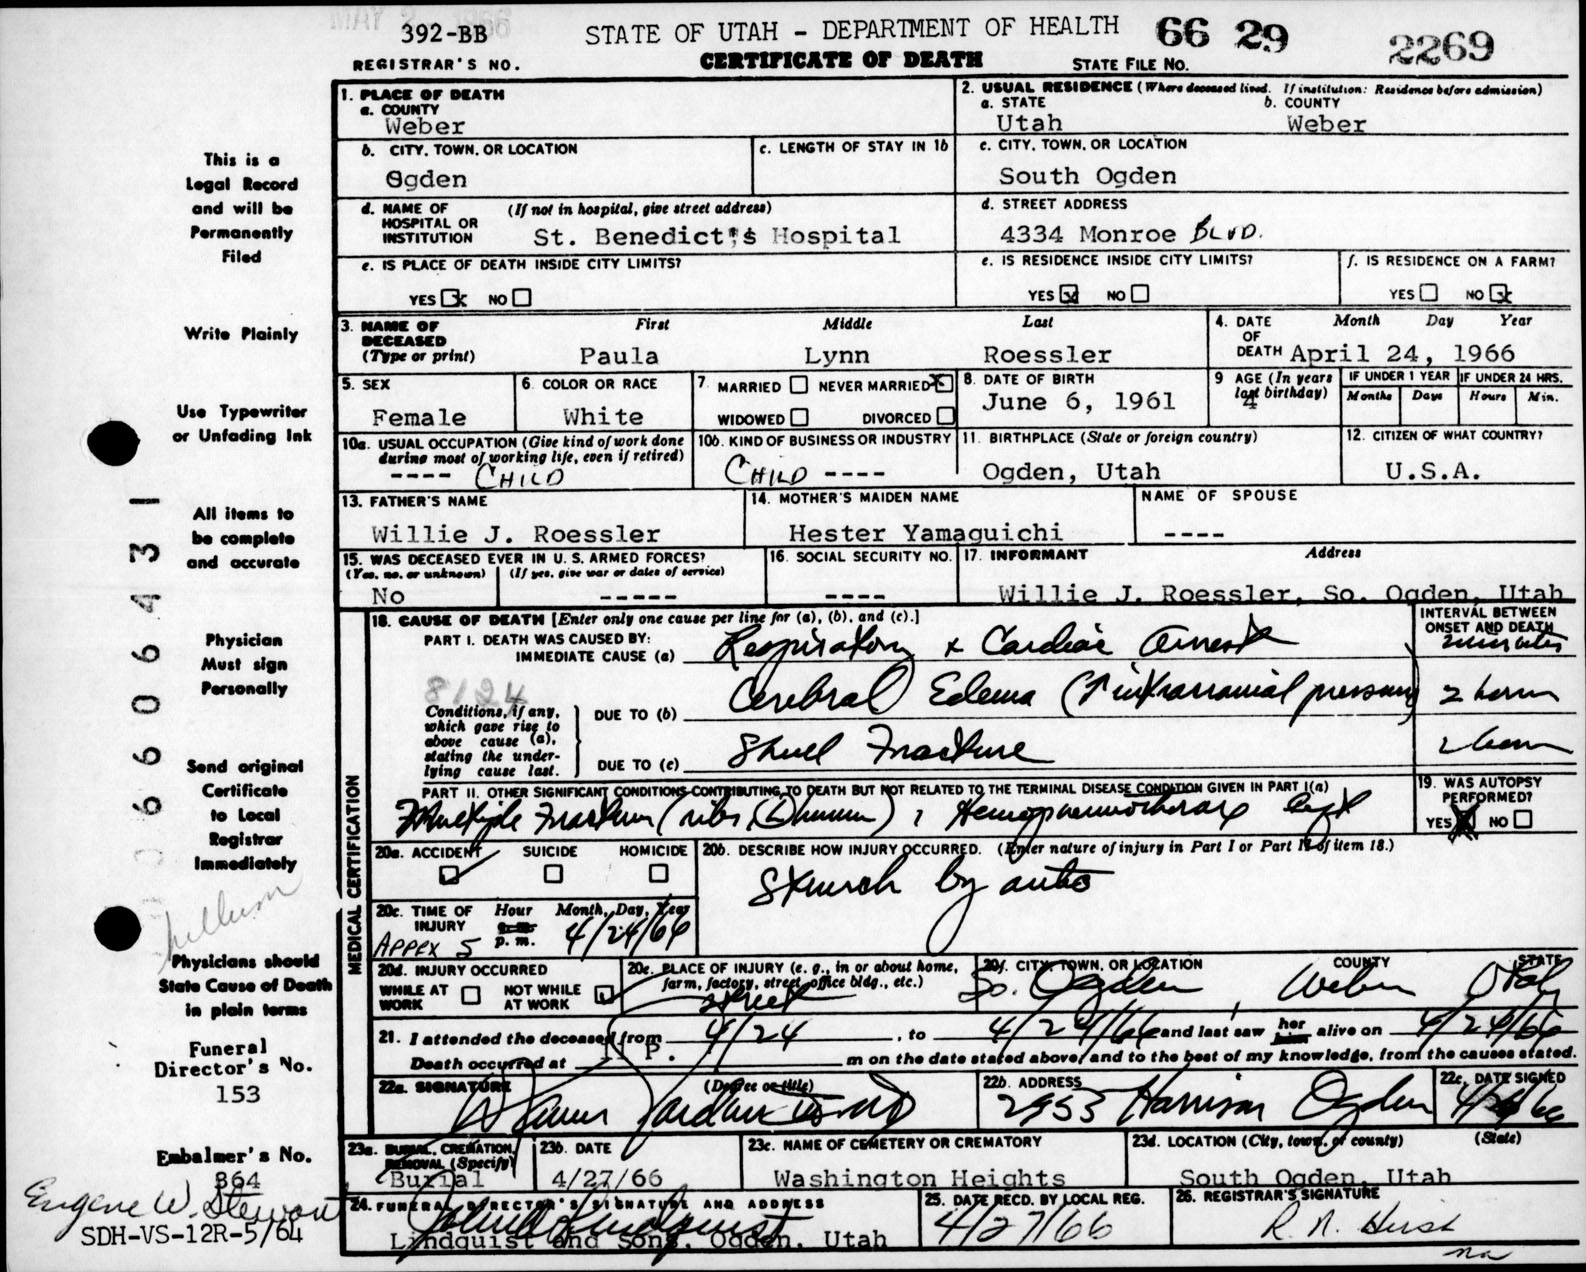 MAY 2 1966
392-BB
REGISTRAR'S NO.
STATE OF UTAH - DEPARTMENT OF HEALTH
CERTIFICATE OF DEATH
66 29 2269
STATE FILE NO.
This is a
Legal Record
and will be
Permanently
Filed
Write Plainly
Use Typewriter
or Unfading Ink
All items to
be complete
and accurate
Physician
Must sign
Personally
Send original
Certificate
to Local
Registrar
Immediately
Physicians should
State Cause of Death
in plain terms
Funeral
Director's No.
153
Embalmer's No.
864
Eugene W. Stewart
SDH-VS-12R-5/64
6606431
1. PLACE OF DEATH
a. COUNTY
Weber
2. USUAL RESIDENCE (Where deceased lived. If institution: Residence before admission)
a. STATE b. COUNTY
Utah Weber
b. CITY, TOWN, OR LOCATION
Ogden
c. LENGTH OF STAY IN 1b
c. CITY, TOWN, OR LOCATION
South Ogden
d. NAME OF HOSPITAL OR INSTITUTION (If not in hospital, give street address)
St. Benedict's Hospital
d. STREET ADDRESS
4334 Monroe BLVD.
e. IS PLACE OF DEATH INSIDE CITY LIMITS?
YES x NO
e. IS RESIDENCE INSIDE CITY LIMITS?
YES x NO
f. IS RESIDENCE ON A FARM?
YES NO x
3. NAME OF DECEASED (Type or print) First Middle Last
Paula Lynn Roessler
4. DATE OF DEATH Month Day Year
April 24, 1966
5. SEX
Female
6. COLOR OR RACE
White
7. MARRIED NEVER MARRIED x
WIDOWED DIVORCED
8. DATE OF BIRTH
June 6, 1961
9 AGE (In years last birthday)
4
IF UNDER 1 YEAR IF UNDER 24 HRS.
Months Days Hours Min.
10a. USUAL OCCUPATION (Give kind of work done during most of working life, even if retired)
---- CHILD
10b. KIND OF BUSINESS OR INDUSTRY
CHILD ----
11. BIRTHPLACE (State or foreign country)
Ogden, Utah
12. CITIZEN OF WHAT COUNTRY?
U.S.A.
13. FATHER'S NAME
Willie J. Roessler
14. MOTHER'S MAIDEN NAME
Hester Yamaguichi
NAME OF SPOUSE
----
15. WAS DECEASED EVER IN U. S. ARMED FORCES?
(Yes, no, or unknown) (If yes, give war or dates of service)
No -----
16. SOCIAL SECURITY NO.
----
17. INFORMANT Address
Willie J. Roessler, So. Ogden, Utah
MEDICAL CERTIFICATION
18. CAUSE OF DEATH [Enter only one cause per line for (a), (b), and (c).]
INTERVAL BETWEEN ONSET AND DEATH
PART I. DEATH WAS CAUSED BY:
IMMEDIATE CAUSE (a) Respiratory + Cardiac Arrest minutes
8124
Conditions, if any, which gave rise to above cause (a), stating the underlying cause last.
DUE TO (b) Cerebral Edema (↑ intracranial pressure) 2 hours
DUE TO (c) Skull Fracture 2 hours
PART II. OTHER SIGNIFICANT CONDITIONS CONTRIBUTING TO DEATH BUT NOT RELATED TO THE TERMINAL DISEASE CONDITION GIVEN IN PART I(a)
Multiple Fracture (ribs, (L) humerus), Hemopneumothorax left
19. WAS AUTOPSY PERFORMED?
YES X NO
20a. ACCIDENT SUICIDE HOMICIDE
20b. DESCRIBE HOW INJURY OCCURRED. (Enter nature of injury in Part I or Part II of item 18.)
Struck by auto
20c. TIME OF INJURY Hour Month, Day, Year
a. m.
p. m.
APPEX 5 4/24/66
20d. INJURY OCCURRED
WHILE AT WORK NOT WHILE AT WORK
20e. PLACE OF INJURY (e. g., in or about home, farm, factory, street, office bldg., etc.)
street
20f. CITY, TOWN, OR LOCATION COUNTY STATE
So. Ogden, Weber Utah
21. I attended the deceased from 4/24, to 4/24/66 and last saw her him alive on 4/24/66
Death occurred at P. m on the date stated above, and to the best of my knowledge, from the causes stated.
22a. SIGNATURE (Degree or title)
22b. ADDRESS
2955 Harrison Ogden
22c. DATE SIGNED
23a. BURIAL, CREMATION, REMOVAL (Specify)
Burial
23b. DATE
4/27/66
23c. NAME OF CEMETERY OR CREMATORY
Washington Heights
23d. LOCATION (City, town, or county) (State)
South Ogden, Utah
24. FUNERAL DIRECTOR'S SIGNATURE AND ADDRESS
Lindquist and Sons, Ogden, Utah
25. DATE RECD. BY LOCAL REG.
4/27/66
26. REGISTRAR'S SIGNATURE
R. N. Hirsh
na